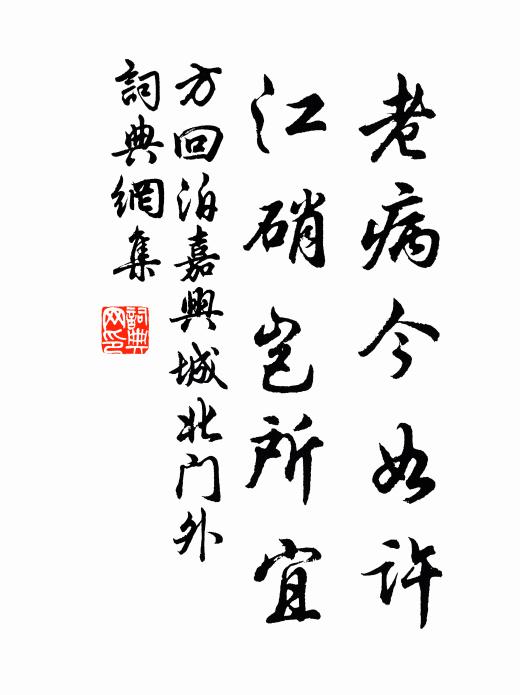 老病今如许
江硝岂所宜
方回泊嘉興城北门外
詞典網集
詞典网印